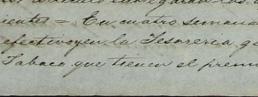 ientes = En cuatro semana
efectivo y en la Tesoreria g
Tabaco que tienen el premi